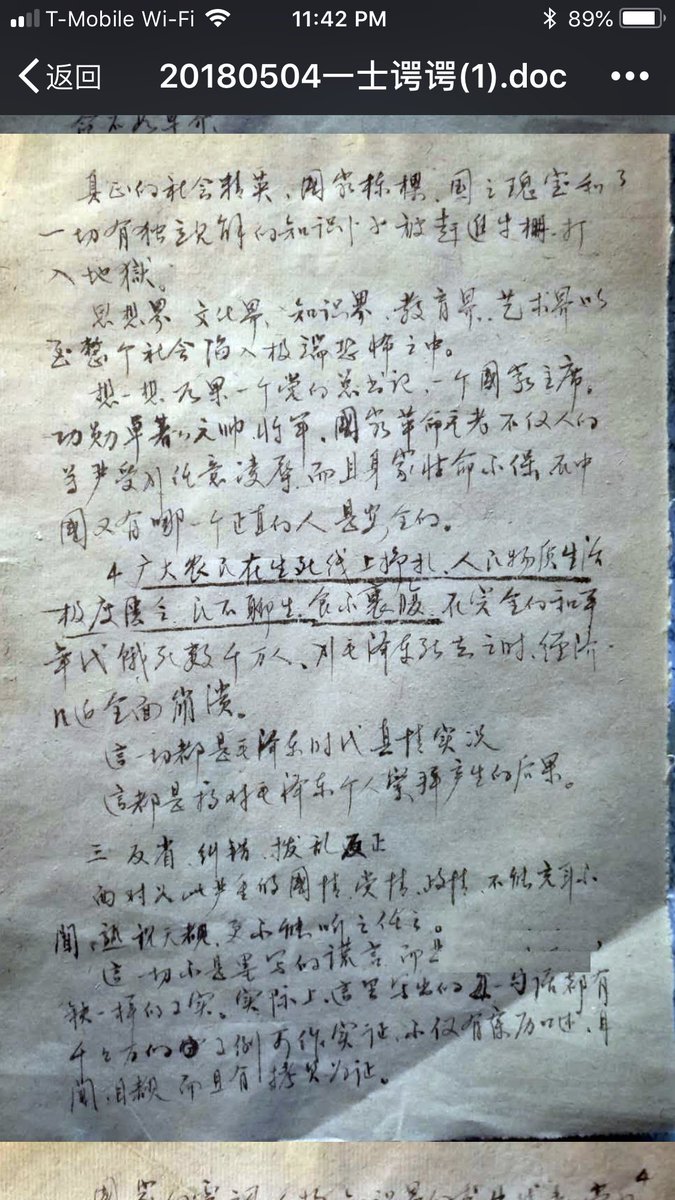 T-Mobile Wi-Fi 11:42 PM 89%
返回 20180504一士谔谔(1).doc •••
真正的社会精英、国家栋樑、国之瑰宝和
一切有独立见解的知识 都被赶進牛棚、打
入地獄。
思想界、文化界、知识界、教育界、艺术界以
至整个社会陷入极端恐怖之中。
想一想、如果一个党的总书记、一个國家主席。
功勋卓著的元帅、将军、國家革命元老不仅人的
尊严受到任意凌辱、而且身家性命不保、在中
國又有哪一个正直的人是安全的。
4 广大农民在生死线上挣扎、人民物质生活
极度匮乏、民不聊生、食不裹腹、在完全的和平
年代饿死数千万人、到毛泽东死去之时、经济
已近全面崩溃。
這一切都是毛泽东时代真情实况
這都是搞对毛泽东个人崇拜产生的后果。
三 反省、纠错、拨乱反正
面对如此严重的國情、党情、政情、不能充耳不
聞、熟视无覩、更不能听之任之。
這一切不是墨写的谎言、而是
铁一样的事实。实际上、這里写出的每一句话都有
千千万万的 事例可作实证、不仅有亲历口述、耳
聞、目覩、而且有 为证。
4